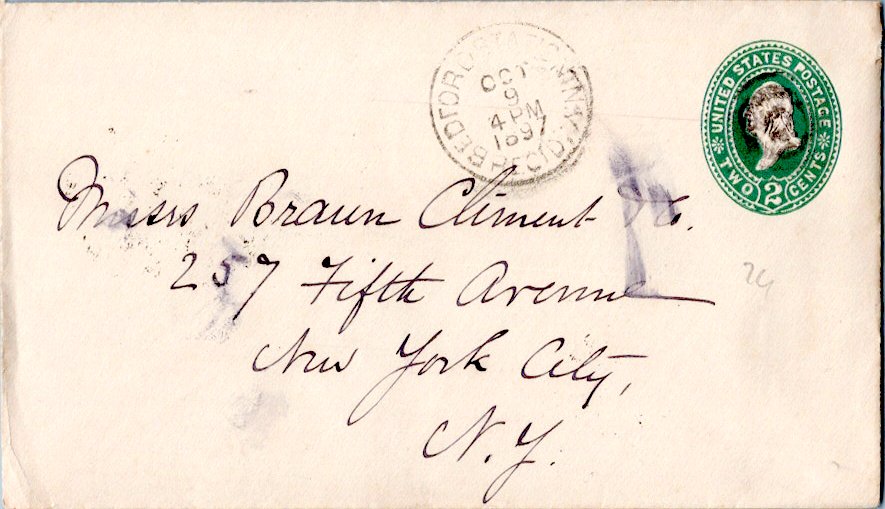 BEDFORD STATION N.Y.
OCT
9
4 PM
1897
REC'D.
UNITED STATES POSTAGE
TWO 2 CENTS
Messrs Braun Clement & Co.
257 Fifth Avenue
New York City,
N.Y.
24